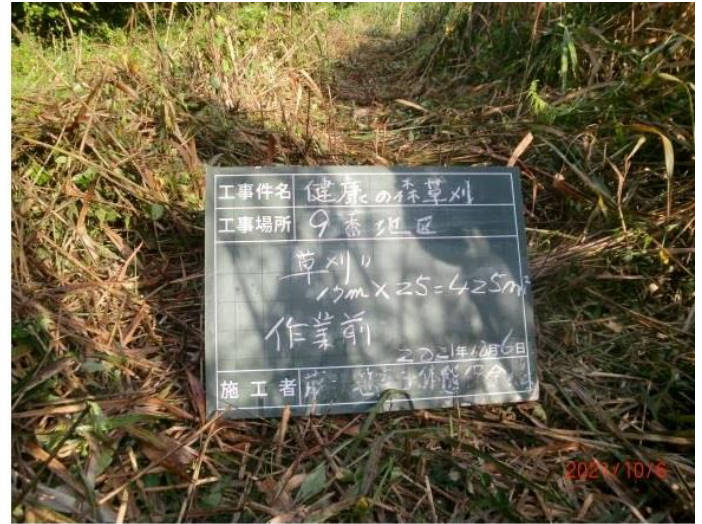 工事件名 健康の森草刈
工事場所 9番地区
草刈り
17m×25=425m²
作業前
2021年10月6日
施工者
2021/10/6